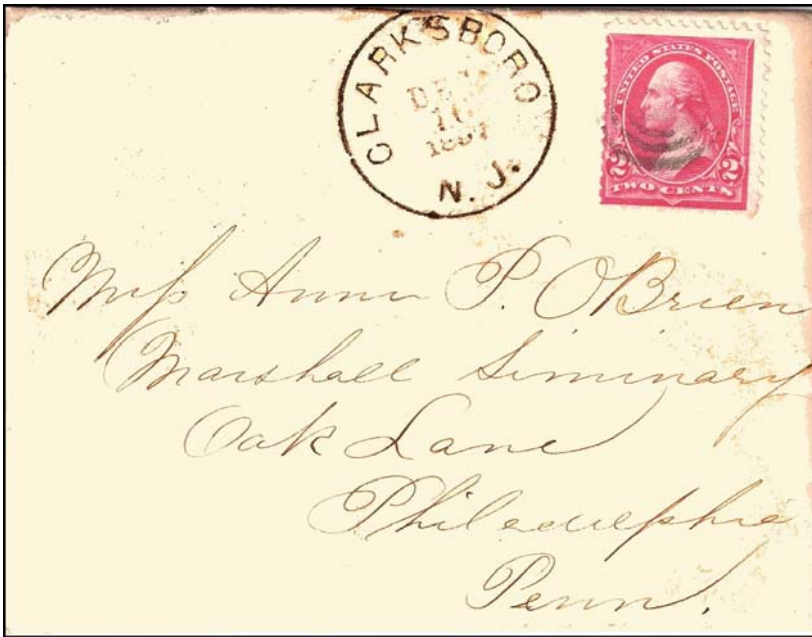 CLARKSBORO
N. J.
UNITED STATES POSTAGE
2 2
TWO CENTS
Miss Anna P. OBrien
Marshall Siminary
Oak Lane
Philadelphia
Penn.